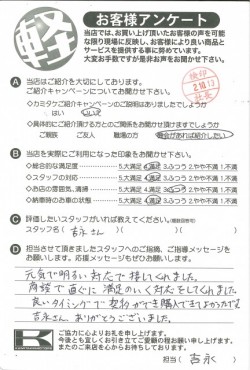 軽
お客様アンケート
当店では、お買い上げ頂いたお客様の声を可能
な限り現場に反映し、お客様により良い商品と
サービスを提供する事に努めています。
大変お手数ですが是非お声をお聞かせ下さい。
A 当店はご紹介を大切にしております。
ご紹介キャンペーンについてお聞かせ下さい。
◇カミタケご紹介キャンペーンの説明はありましたでしょうか
はい いいえ
◇具体的にご紹介頂ける方とのご関係をお聞かせ頂けますでしょうか
ご親族 ご友人 職場の方 機会があれば紹介したい
B 当店を実際にご利用になった印象をお聞かせ下さい。
◇総合的な満足度 5.大満足 4.満足 3.ふつう 2.やや不満 1.不満
◇スタッフの対応 5.大満足 4.満足 3.ふつう 2.やや不満 1.不満
◇お店の雰囲気、清掃 5.大満足 4.満足 3.ふつう 2.やや不満 1.不満
◇納車時のお車の状態 5.大満足 4.満足 3.ふつう 2.やや不満 1.不満
C 評価したいスタッフがいれば教えてください。(複数回答可)
スタッフ名( 吉永さん )( )
D 担当させて頂きましたスタッフへのご指摘、ご指導メッセージを
お願いします。応援メッセージもぜひお願いします。
元気で明るい対応で接してくれました。
商談で直ぐに満足のいく対応をしてくれました
良いタイミングで契約ができ購入できてよかったです
吉永さん、ありがとうございました。
ご協力に心よりお礼を申し上げます。
今後とも宜しくお引き立てとご愛顧の程お願い申し上げます。
またのご来店を心からお待ちしております。
担当( 吉永 )